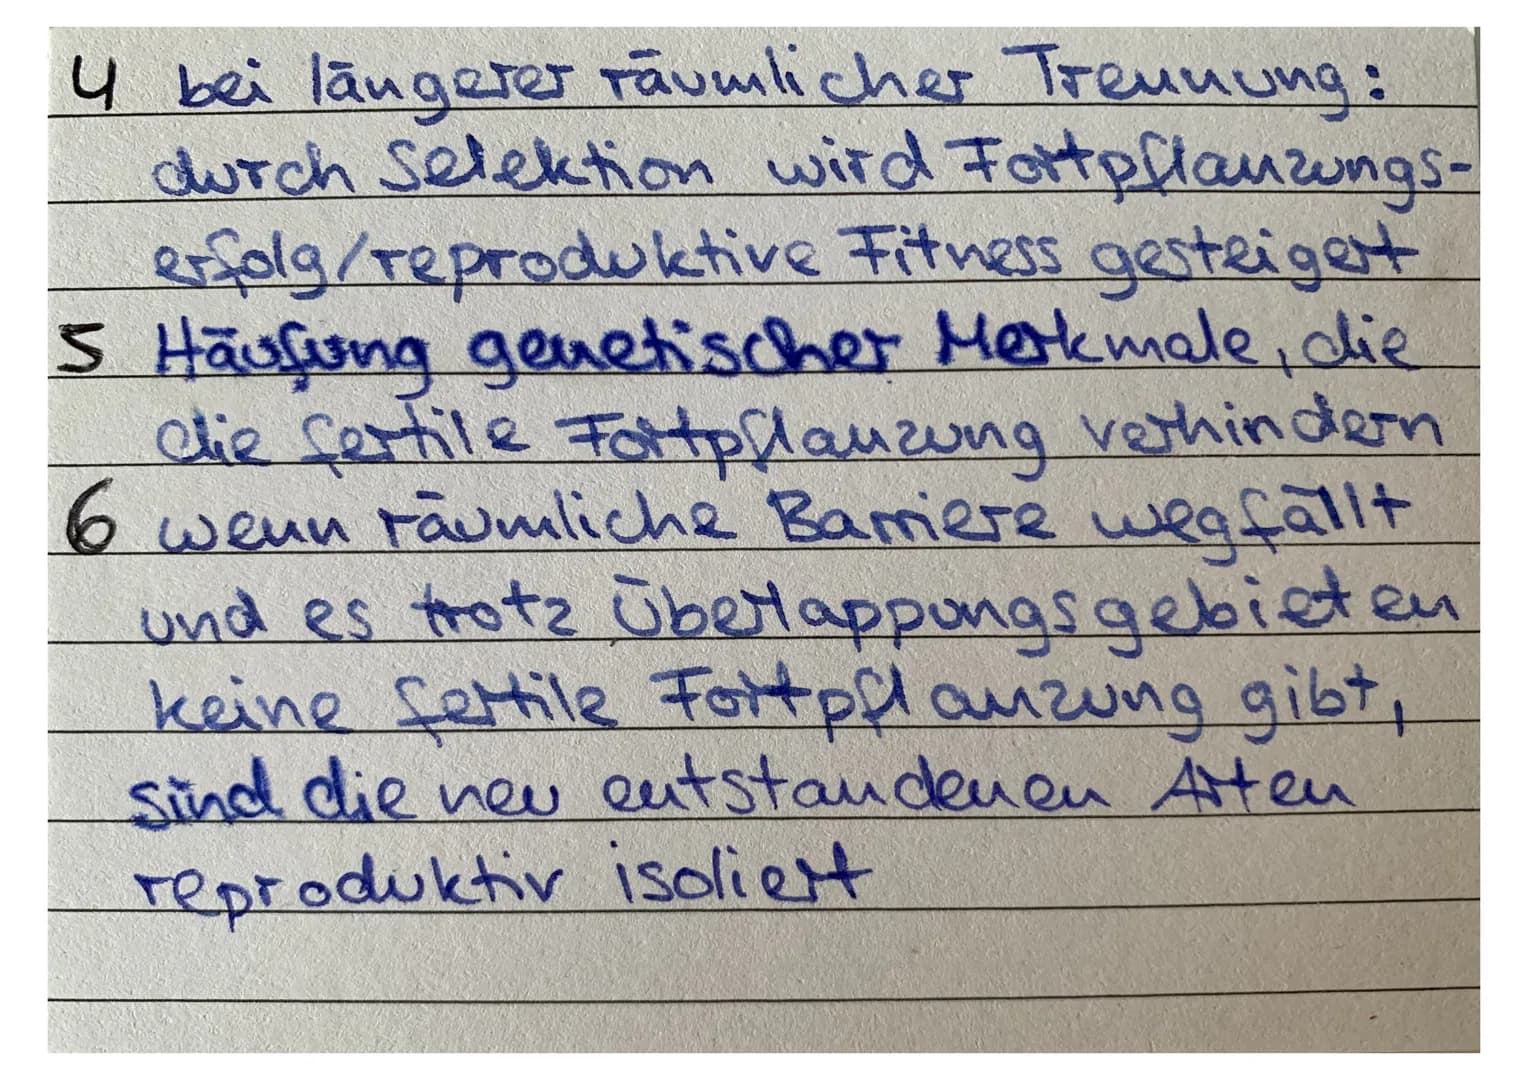 4 bei längerer räumlicher Trennung:
durch Selektion wird Fortpflanzungs-
erfolg/reproduktive Fitness gesteigert
5 Häufung genetischer Merkmale, die
die fertile Fortpflanzung verhindern
6 wenn räumliche Barriere wegfällt
und es trotz Überlappungsgebieten
keine fertile Fortpflanzung gibt,
sind die neu entstandenen Arten
reproduktiv isoliert